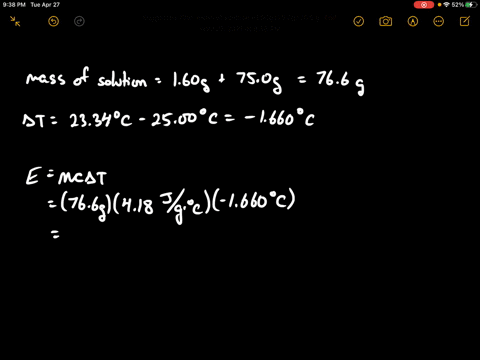 9:38 PM Tue Apr 27
52%
mass of solution = 1.60g + 75.0g = 76.6 g
ΔT = 23.34°C - 25.00°C = -1.660°C
E = mcΔT
= (76.6g)(4.18 J/g·°C)(-1.660°C)
=